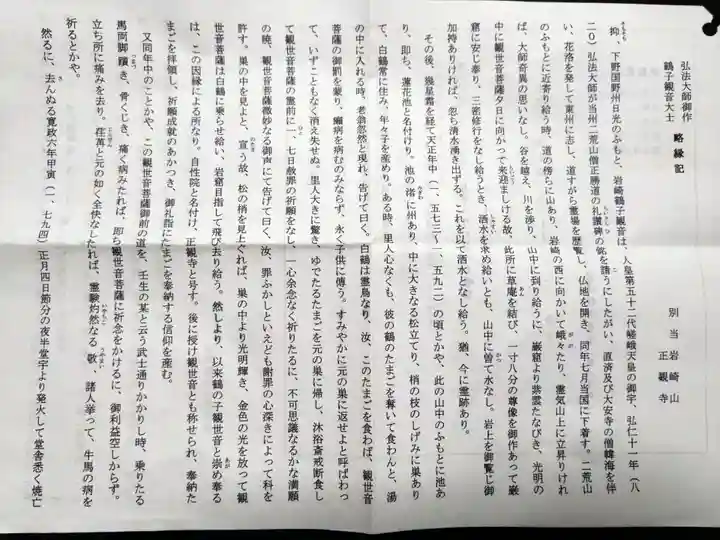 弘法大師御作
鶴子観音大士　略縁記
別当岩崎山
正観寺
抑、下野国野州日光のふもと、岩崎鶴子観音は、人皇第五十二代嵯峨天皇の御宇、弘仁十一年（八
二〇）弘法大師が当州二荒山僧正勝道の礼讃碑の銘を請うにしたがい、直済及び大安寺の僧韓海を伴
い、花洛を発して東州に志し、道すがら霊場を歴覧し、仏地を開き、同年七月当国に下着す。二荒山
のふもとに近寄り給う時、道の傍らに山あり、岩崎の西に向かいて峨々たり、霊気山上に立昇りけれ
ば、大師奇異の思いなし。谷を越え、川を渉り、山中に到り給うに、巌窟より紫雲たなびき、光明の
中に観世音菩薩夕日に向かって来迎ましける故、此所に草庵を結び、一寸八分の尊像を御作あって巌
窟に安じ奉り、三密修行をなし給うとき、洒水を求め給いとも、山中に曽て水なし。岩上を御覧じ御
加持ありければ、忽ち清水湧き出ずる。これを以て洒水となし給う。猶、今に霊跡あり。
その後、幾星霜を経て天正年中（一、五七三～一、五九二）の頃とかや、此の山中のふもとに池あ
り、即ち、蓮花池と名付けり。池の渚に州あり、中に大きなる松立てり、梢の枝のしげみに巣あり
て、白鶴常に住み、年々子を産めり。ある時、里人心なくも、彼の鶴のたまごを奪いて食わんと、湯
の中に入れる時、老翁忽然と現れ、告げて曰く。白鶴は霊鳥なり、汝、このたまごを食わば、観世音
菩薩の御罰を蒙り、癩病を病むのみならず、永く子供に傳う。すみやかに元の巣に返せよと呼ばわっ
て、いずこともなく消え失せぬ。里人大きに驚き、ゆでたるたまごを元の巣に帰し、沐浴斎戒断食し
て観世音菩薩の霊前に一、七日赦罪の祈願をなし、一心余念なく祈りたるに、不可思議なるかな満願
の晩、観世音菩薩微妙なる御声にて告げて曰く、汝、罪ふかしといえども謝罪の心深きによって科を
許す。巣の中を見よと、宣う故、松の梢を見上ぐれば、巣の中より光明輝き、金色の光を放って観
世音菩薩は白鶴に乗らせ給い、岩窟目指して飛び去り給う。然しより、以来鶴の子観世音と崇め奉る
は、この因縁による所なり。自性院と名付け、正観寺と号す。後に授け観世音とも称せられ、奉納た
まごを拝領し、祈願成就のあかつき、御礼詣にたまごを奉納する信仰を産む。
又同年中のことかや、この観世音菩薩御前の道を、壬生の某と云う武士通りかかりし時、乗りたる
馬岡脚躓き、骨くじき、痛く病みたれば、即ち観世音菩薩に祈念をかけるに、御利益空しからず。
立ち所に痛みを去り。荏萬と元の如く全快なしたれば、霊験灼然なる敬、諸人挙って、牛馬の病を
祈るとかや。
然るに、去んぬる寛政六年甲寅（一、七九四）正月四日節分の夜半堂宇より発火して堂舎悉く焼亡